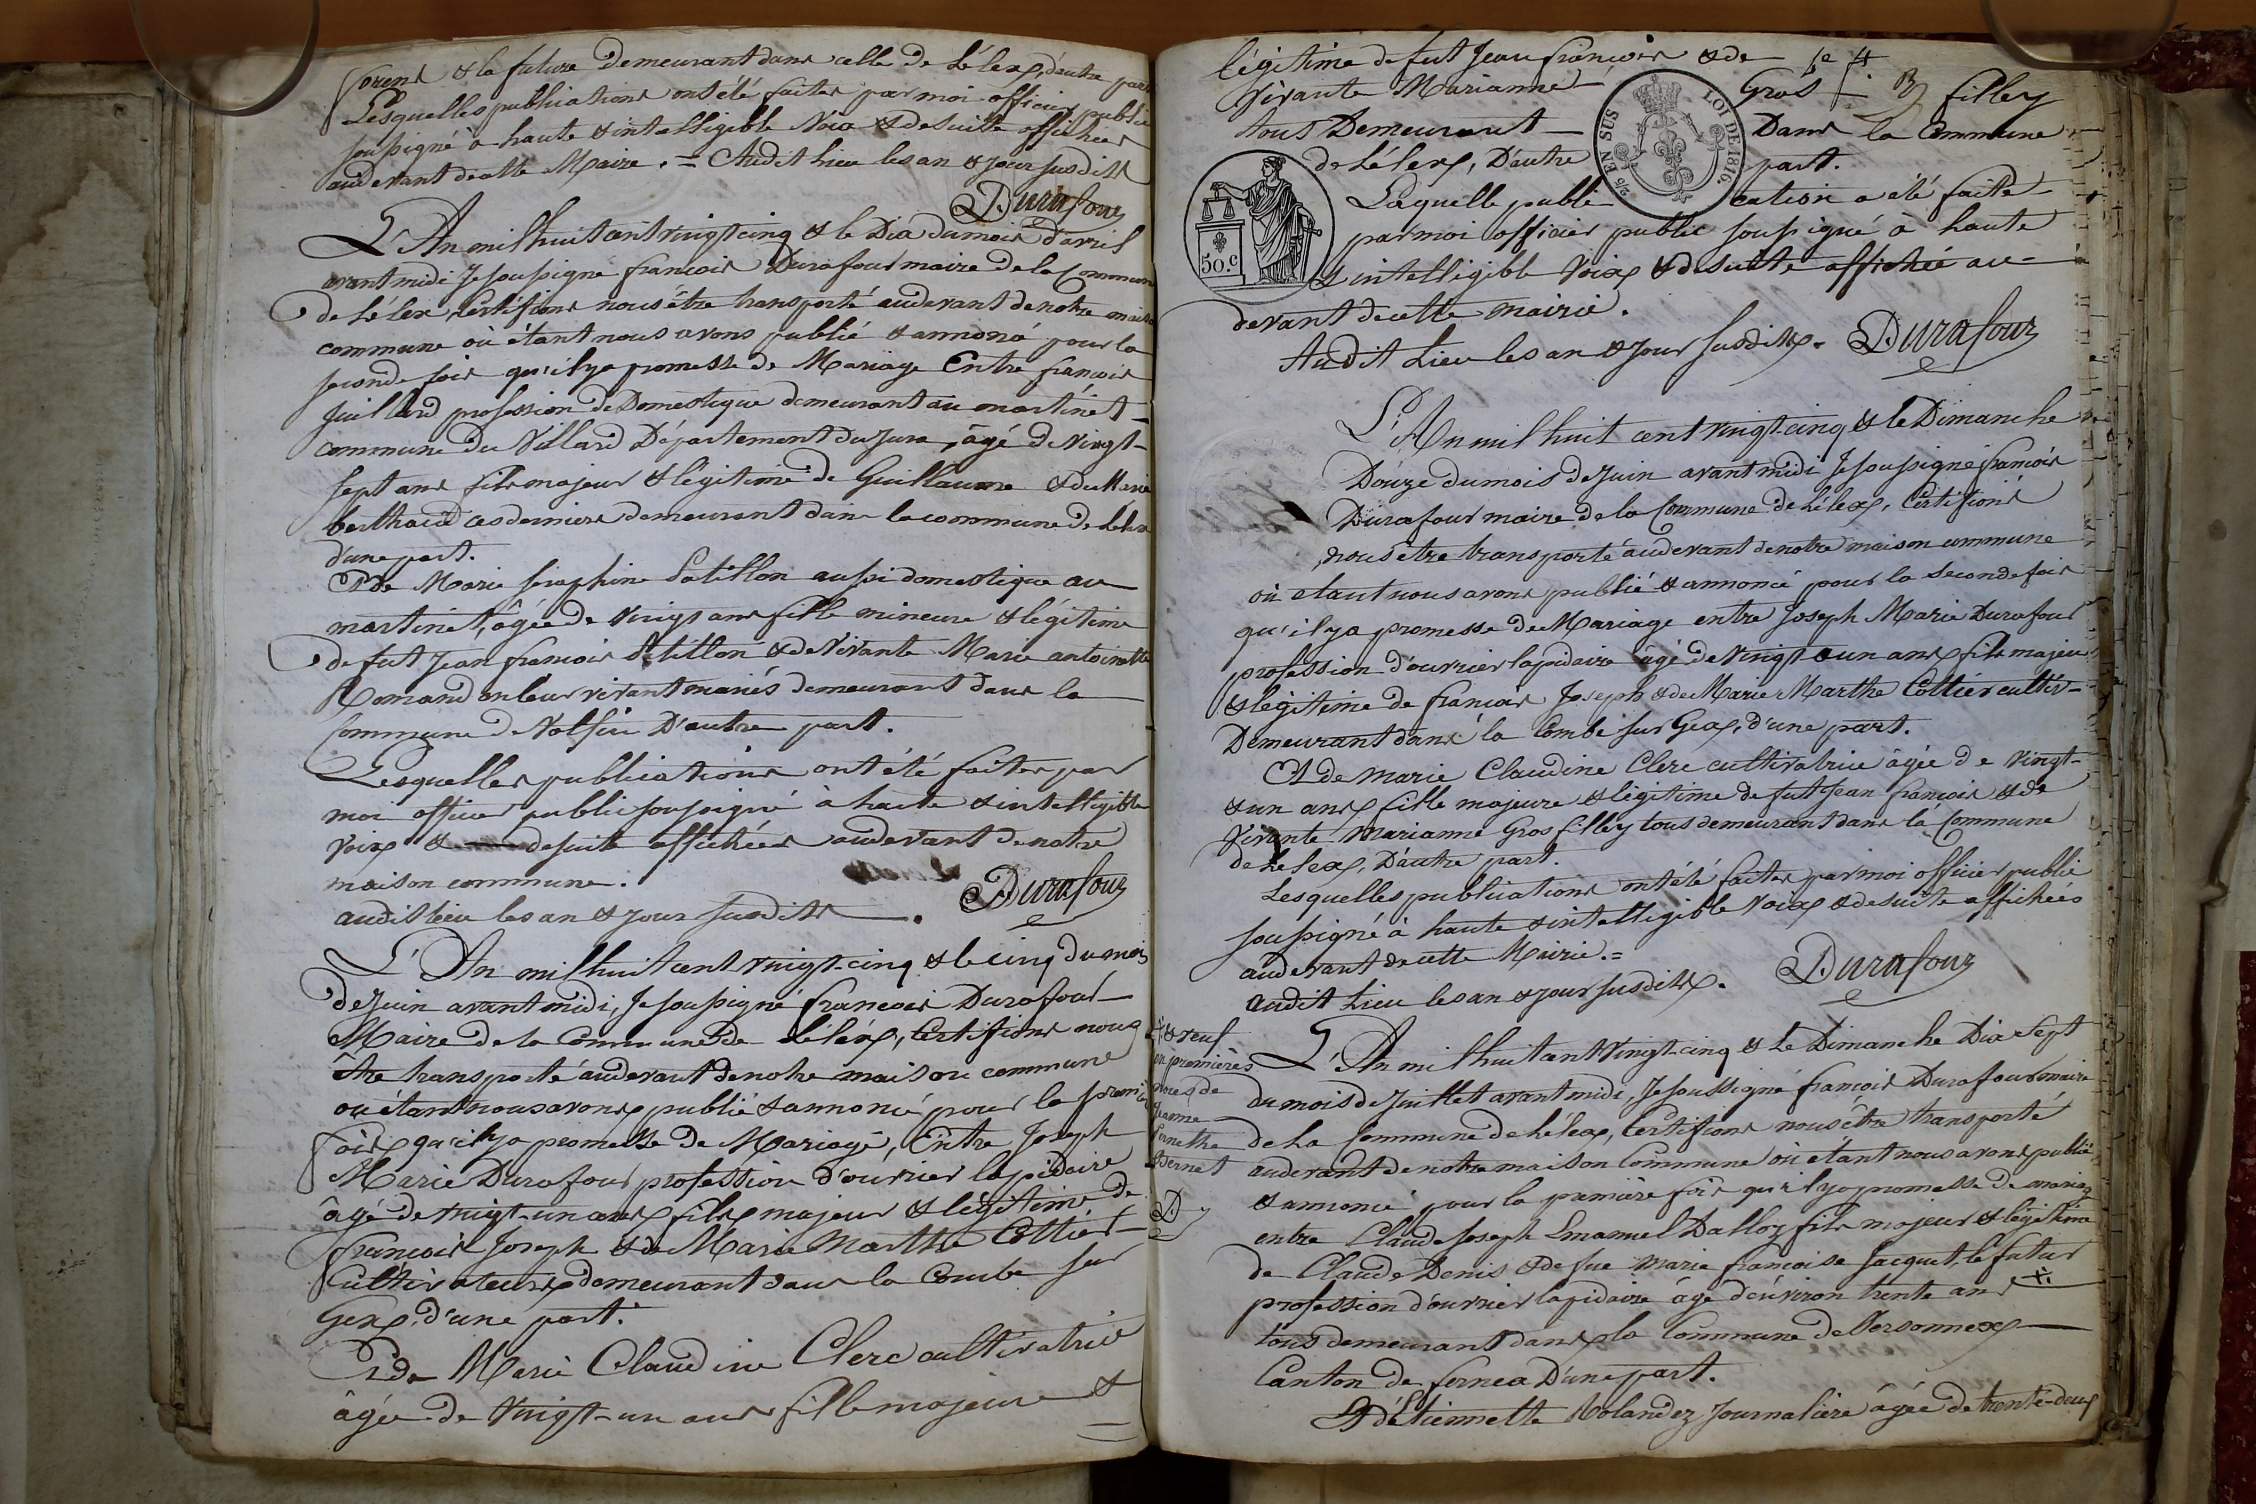 prens & la future Demeurant dans celle de Lélex, d'autre part
Lesquelles publications ont été faites par moi officier public
soussigné à haute & intelligible Voix & desuite affichées
audevant de cette Maire . = Audit Lieu les an & jour susdits
Durafour
L'An mil huit cent vingt cinq & le Dix du mois d'avril
avant midi Je soussigne françois Durafour maire de la Commune
de Lélex, Certifions nous être transporté audevant de notre maison
commune où étant nous avons publié & annoncé pour la
seconde fois qu'il y a promesse de Mariage Entre françois
Juillard profession de Domestique demeurant au martinet
commune du Villard Département du Jura, âgé de Vingt-
sept ans fils majeur & légitime de Guillaume & de Marie
berthaud ces derniers demeurant dans la commune de Lélex
d'une part.
Et de Marie Séraphine Patillon aussi domestique au
martinet, âgée de vingt ans fille mineure & légitime
de fut Jean françois Patillon & de Vivante Marie antoinette
Romand en leur vivant mariés demeurant dans la
Commune de Volfin D'autre part.
Lesquelles publications ont été faites par
moi officier public soussigné à haute & intelligible
voix & desuite affichées audevant de notre
maison commune.
audit lieu les an & jour susdits .
Durafour
L'An mil huit cent vingt-cinq & le cinq du mois
de Juin avant midi, Je soussigné françois Durafour
Maire de la Commune de Lélex, Certifions nous
être transporté audevant de notre maison commune
où étant nous avons publié & annoncé pour la premiere
fois qu'il y a promesse de Mariage, Entre Joseph
Marie Durafour profession d'ouvrier lapidaire
âgé de vingt-un ans fils majeur & légitime de
françois Joseph & de Marie Marthe Cottier
Cultivateurs demeurant dans la Combe sur
Gex, d'une part.
Et de Marie Claudine Clerc cultivatrice
âgée de Vingt-un ans fille majeure &
légitime de fut Jean françois & de
Vivante Marianne Gros filley
tous Demeurant Dans la Commune
de Lélex, D'autre part.
LOI DE 1816.
2/6 EN SUS
50.c
Laquelle publication a été faite
par moi officier public soussigné à haute
& intelligible Voix & desuite affichée au-
devant de cette mairie.
Audit Lieu les an & jour susdits. Durafour
L'An mil huit cent vingt-cinq & le Dimanche
Douze du mois de Juin avant midi Je soussigne françois
Durafour maire de la Commune de Lélex, Certifions
nous être transporté audevant de notre maison commune
où etant nous avons publié & annoncé pour la seconde fois
qu'il y a promesse de Mariage entre Joseph Marie Durafour
profession d'ouvrier lapidaire âgé de Vingt & un ans fils majeur
& légitime de françois Joseph & de Marie Marthe Cottier cultiv-
Demeurant dans la Combe sur Gex, d'une part.
Et de marie Claudine Clerc cultivatrice âgée de vingt-
& un ans fille majeure & légitime de fut Jean françois & de
Vivante Marianne Gros filley tous demeurant dans la Commune
de Lelex, D'autre part.
Lesquelles publications ont été faites par moi officier public
soussigné à haute & intelligible Voix & desuite affichées
audevant de cette Mairie. =
audit Lieu les an & jour susdits. Durafour
& veuf
en premières
noces de
Pernette
Pernet
D
L'An mil huit cent vingt-cinq & Le Dimanche Dix Sept
du mois de Juillet avant midi, Je soussigné françois Durafour maire
de La Commune de Lélex, Certifions nous être transporté
audevant de notre maison Commune où étant nous avons publié
& annoncé pour la première fois qu'il y a promesse de mariage
entre Claude Joseph Emanuel Dalloz fils majeur & légitime
de Claude Denis & de fue Marie françoise Jacquet, le futur
profession d'ouvrier lapidaire âgé d'environ trente ans
tous demeurant dans la Commune de Versonnex
Canton de fernex D'une part.
Et d'Etiennette Rolandez Journalière âgée de trente-deux